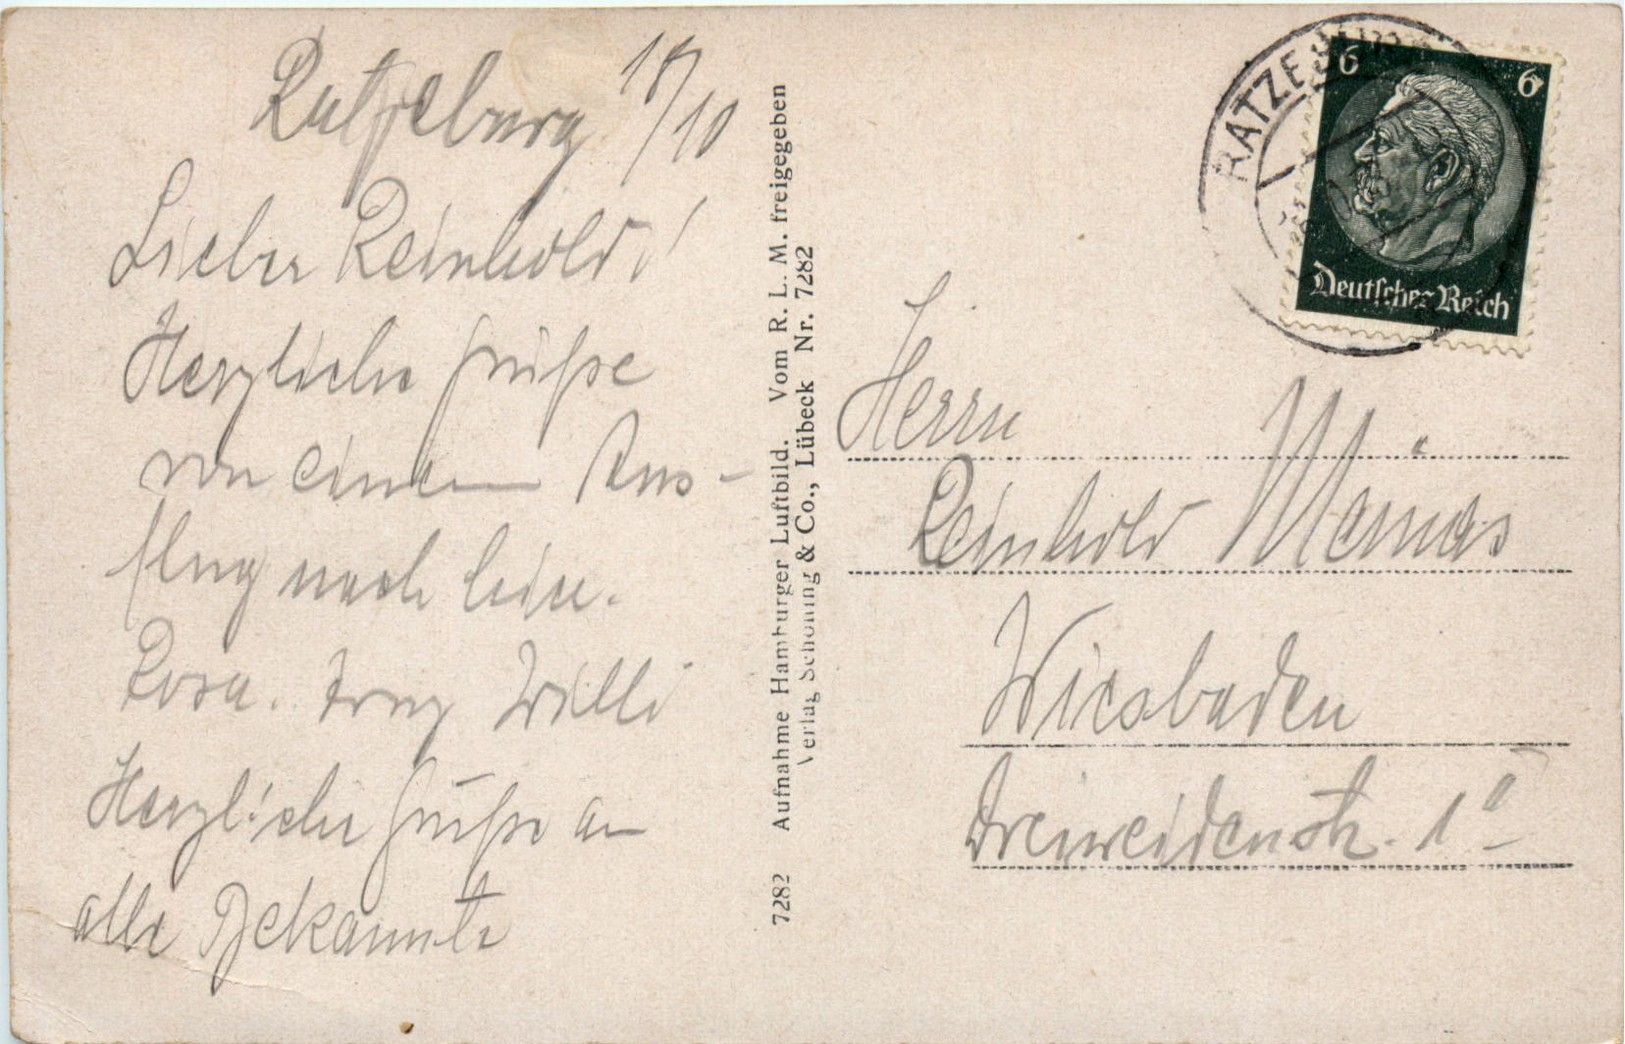 Ratzeburg 18/10
Lieber Reinhold!
Herzliche Grüße
von einem Aus-
flug nach hier.
Rosa. Franz Willi
Herzliche Grüße an
alle Bekannte
7282 Aufnahme Hamburger Luftbild. Vom R. L. M. freigegeben
Verlag Schöning & Co., Lübeck Nr. 7282
RATZEBURG
6 6
Deutsches Reich
Herrn
Reinhold
Wiesbaden
Dreiweidenstr. 1a